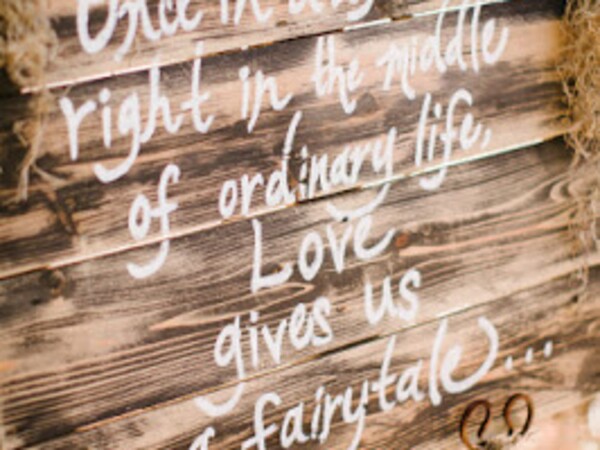 Once in a
right in the middle
of ordinary life,
Love
gives us
a fairytale...